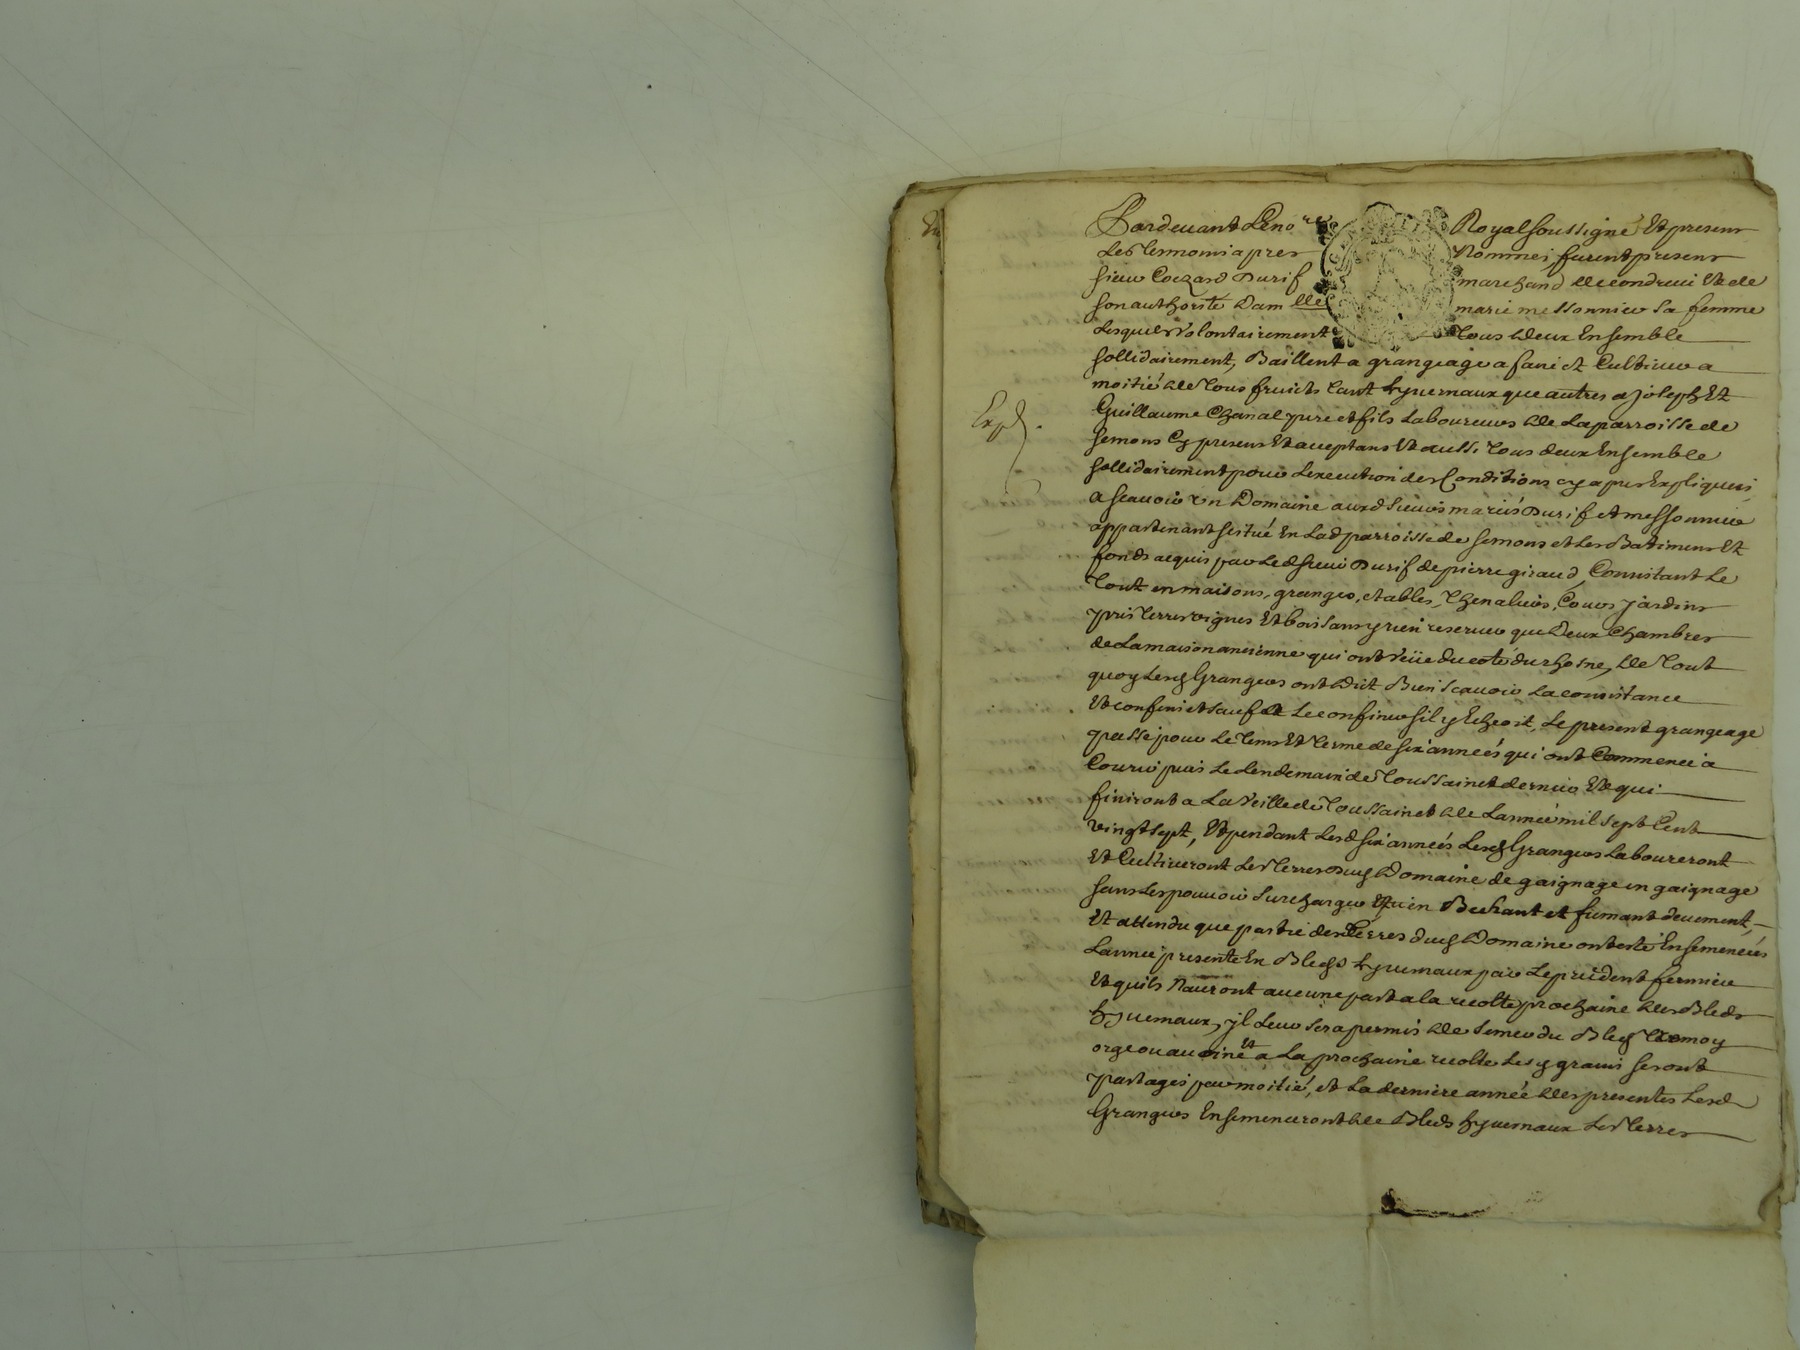 Pardevant Le no.re Royal soussigné Et presens
Les Tesmoins apres Nommés, furent presens
sieur Coezard Durif marchand de Condrieu Et de
son authorité Dam.lle marie messonnier sa femme
Lesquels Volontairement Tous Deux Ensemble
sollidairement, Baillent a grangeage a faire et Cultiver a
moitié de Tous fruicts tant hyuernaux que autres a joseph Et
Guillaume Chanal pere et fils Laboureurs de La parroisse de
semons Cy presens Et acceptans Et aussi Tous deux Ensemble
sollidairement pour Lexecution des Conditions cy apres Expliquées
Exp.
a scauoir Un Domaine auxd sieurs mariés Durif et messonnier
appartenant scitué En Lad parroisse de semons et Les Batimens Et
fonds acquis par Led sieur Durif de pierre giraud, Consistant Le
Tout en maisons, granges, etables, Chenalieres, Cours jardins
prés Terres vignes Et bois sans y rien reseruer que Deux Chambres
de La maison ancienne qui ont veüe du coté du rhosne, de Tout
quoy Lesd Grangers ont Dit Bien scauoir La consistance
Et confins et sauf a Le confiner sil y Echeoit, Le present grangeage
passé pour Le Tems Et Terme de six années qui ont Commencé a
Courir puis Le Lendemain de Toussainct dernier Et qui
finiront a La Veille de Toussainct de Lannée mil sept Cent
vingt sept, Et pendant Lesd six années Lesd Grangers Laboureront
Et Cultiueront Les Terres Dud Domaine de gaignage en gaignage
sans Les pouuoir surcharger Et en Bechant et fumant deuement,
Et attendu que partie des Terres dud Domaine ont esté Ensemencées
Lannée presente En Bleds hyuernaux par Le precedent fermier
Et quils Nauront aucune part a la recolte prochaine des Bleds
hyuernaux, jl Leur sera permis de semer du Bled Tremoy
orge ou auoine et a La prochaine recolte Lesd grains seront
partagés par moitié, et La derniere année des presentes Lesd
Grangers Ensemenceront de Bleds hyuernaux Les Terres